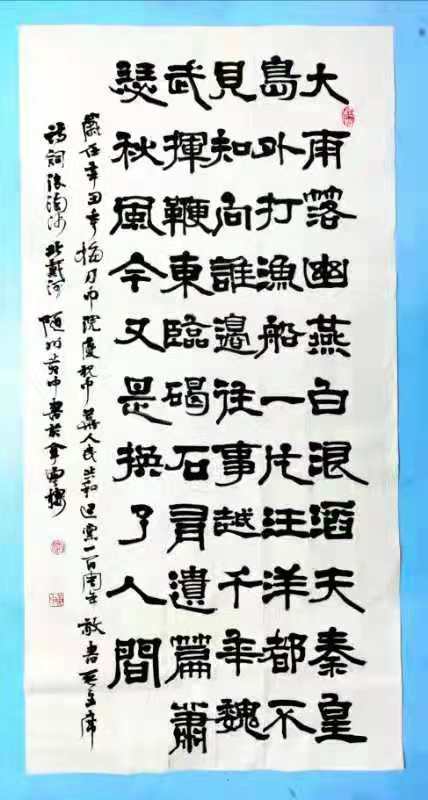 大雨落幽燕白浪滔天秦皇
島外打漁船一片汪洋都不
見知向誰邊往事越千年魏
武揮鞭東臨碣石有遺篇蕭
瑟秋風今又是換了人間
歲在辛丑 院慶祝中華人民共和建黨一百周年敬書毛主席
詩詞浪淘沙北戴河 隨州黄中書於